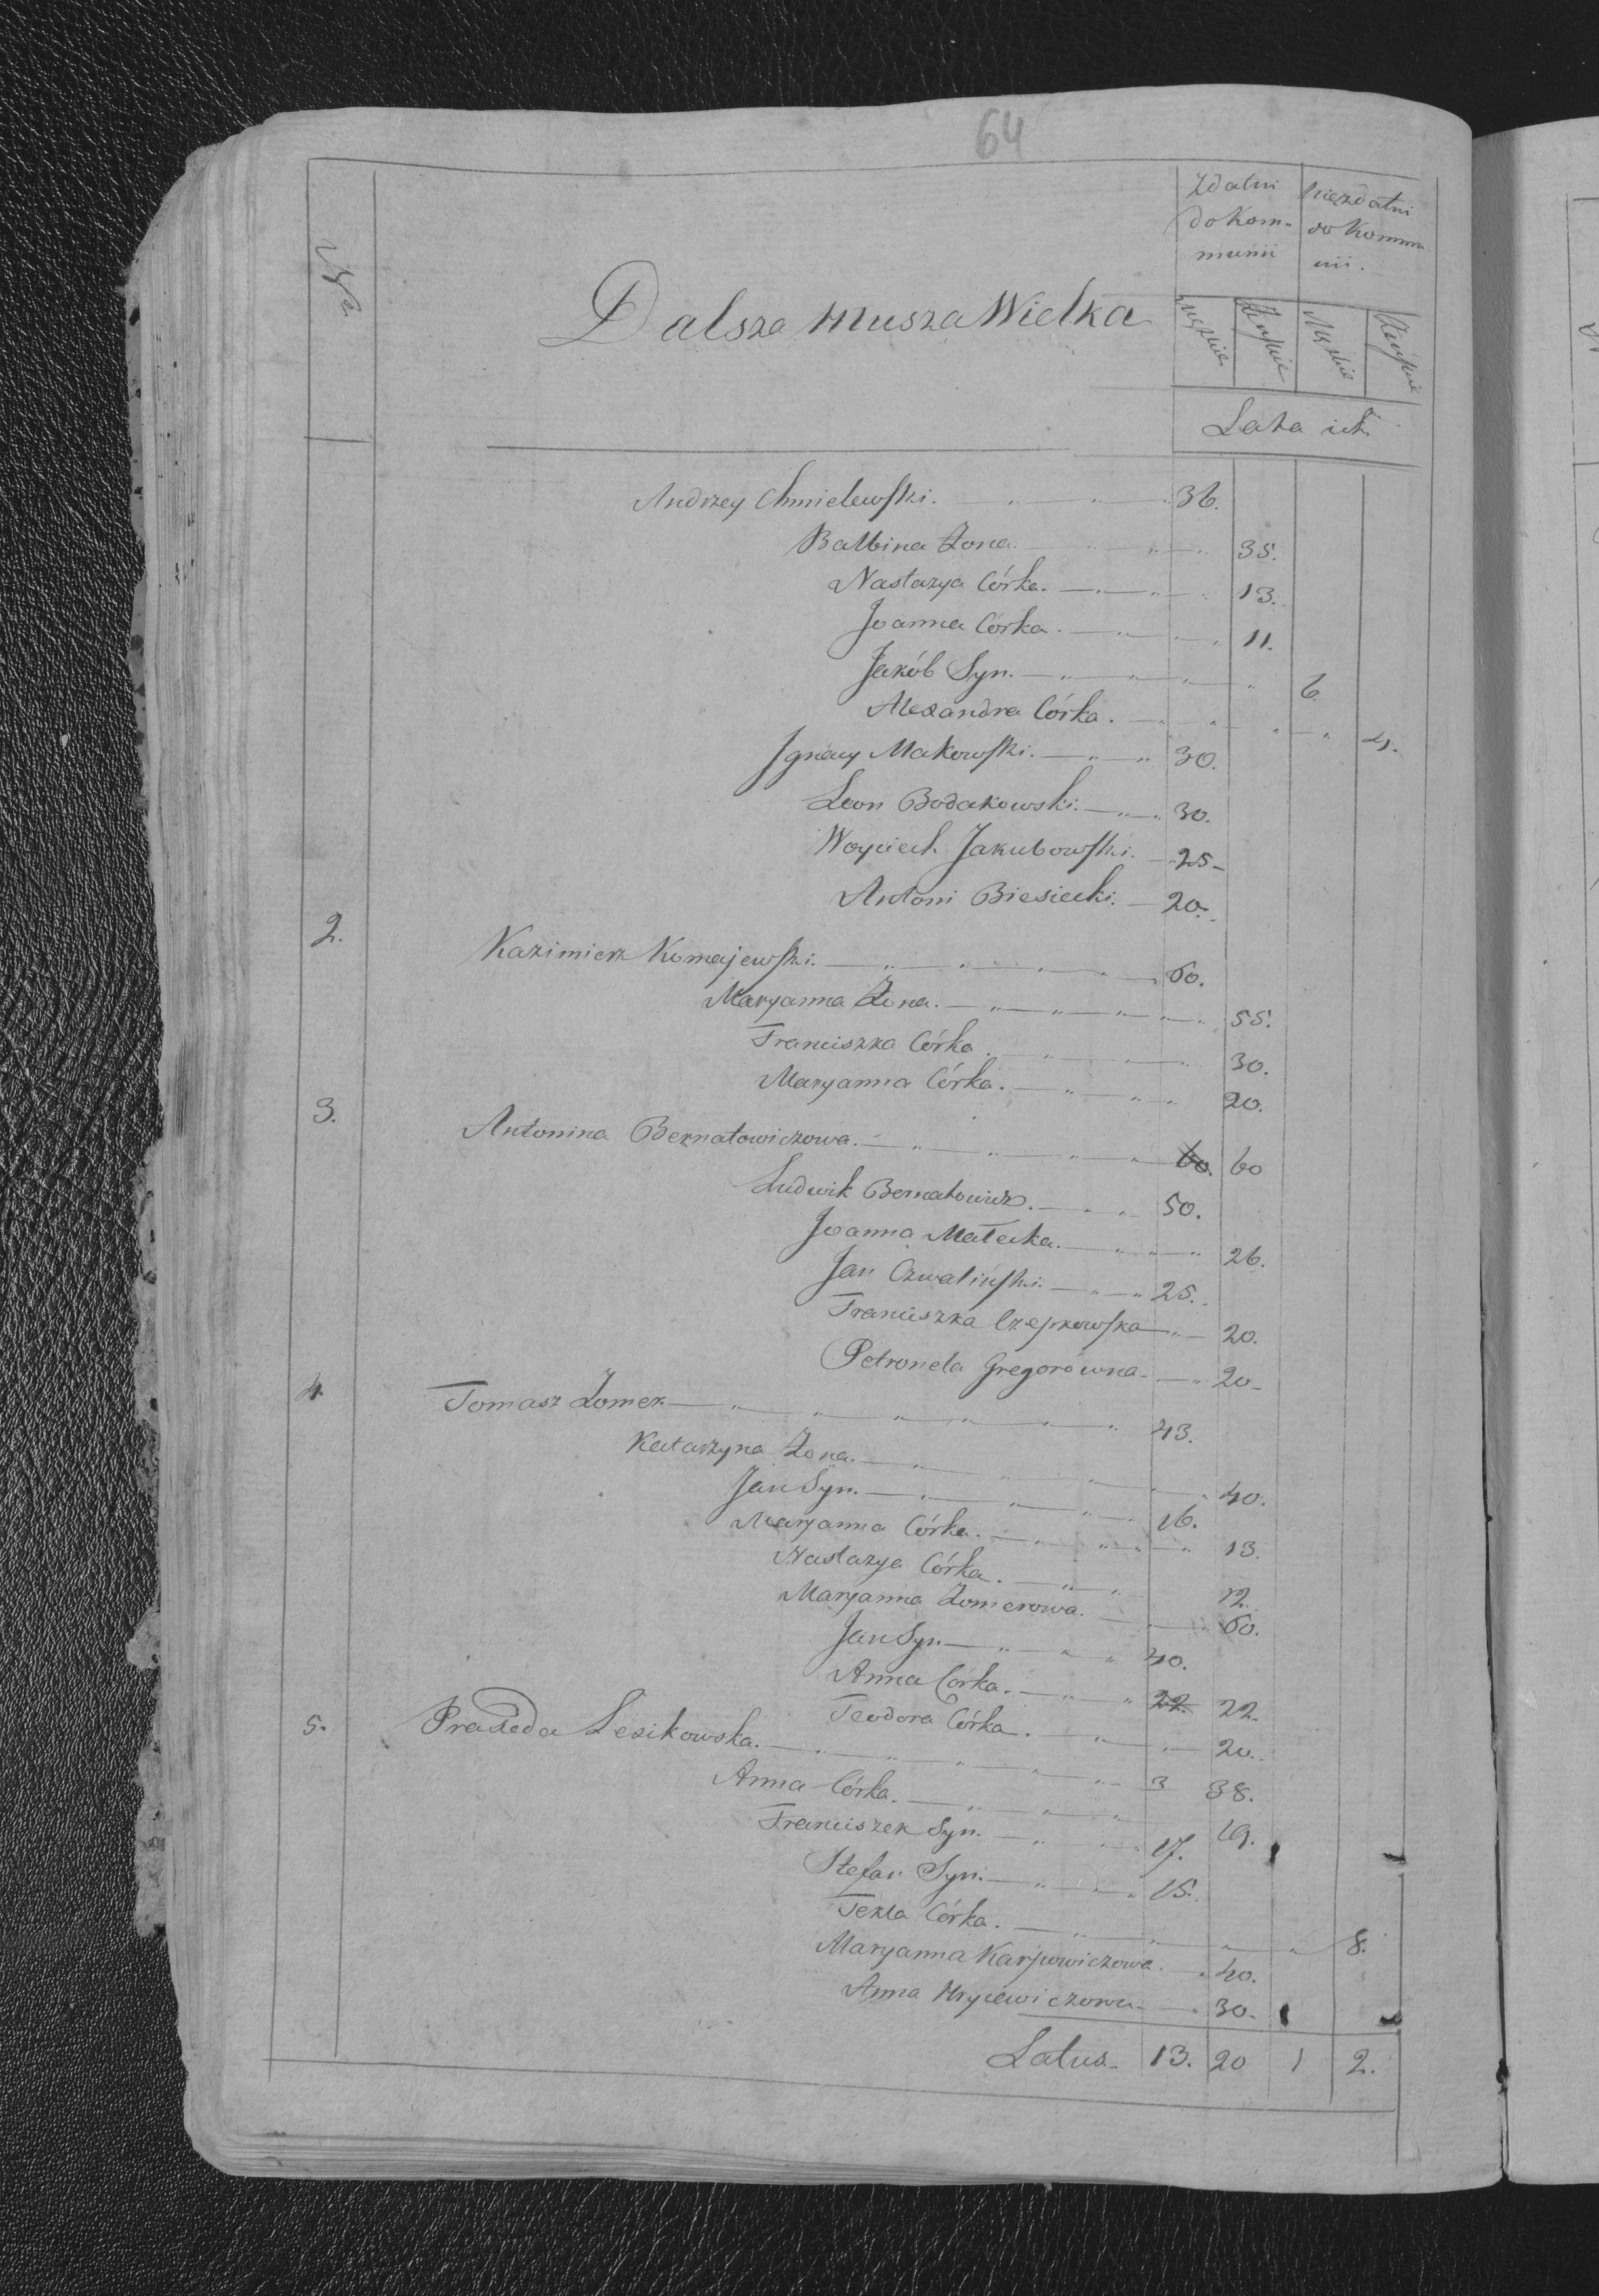 64
Nr
Zdatni do Kommunii
Niezdatni do Kommunii.
Dalsza Musza Wielka
Męzkie Żeńskie Męzkie Żeńskie
Lata ich
Andrzey Chmielewski. 36.
Balbina Żona. 35.
Nastazya Córka. 13.
Joanna Córka. 11.
Jakób Syn. 6
Alexandra Córka. 4.
Ignacy Makowski. 30.
Leon Bodakowski. 30.
Woyciech Jakubowski. 25
Antoni Biesiecki. 20.
2. Kazimierz Komajewski. 60.
Maryanna Żona. 55.
Franciszka Córka. 30.
Maryanna Córka. 20.
3. Antonina Bernatowiczowa. 60. 60
Ludwik Bernatowicz. 50.
Joanna Małecka. 26.
Jan Czwaliński. 25.
Franciszka Czepkowska 20.
Petronela Gregorówna 20
4. Tomasz Żomer 43.
Katarzyna Żona. 40.
Jan Syn. 16.
Maryanna Córka. 13.
Nastazya Córka. 12.
Maryanna Żomerowa. 60.
Jan Syn 40.
Anna Córka. 22. 22.
Teodora Córka. 20.
5. Praxeda Lesikowska. 3 38.
Anna Córka. 19.
Franciszek Syn. 17.
Stefan Syn. 15.
Tekla Córka. 8.
Maryanna Karpowiczowa. 40.
Anna Hrycewiczowa 30.
Latus 13. 20 1 2.